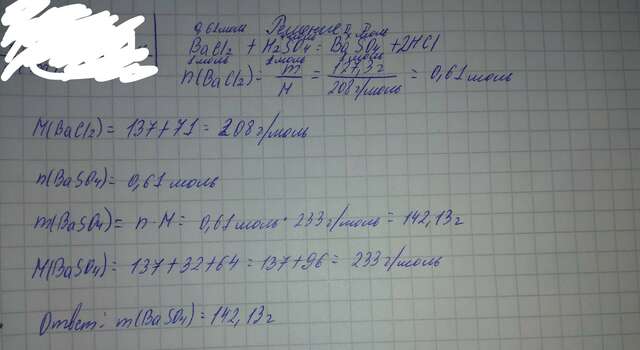 0,61 моль Решение моль
BaCl₂ + H₂SO₄ = BaSO₄ + 2HCl
1 моль 1 моль 1 моль
n(BaCl₂) = m/M = 127,3 г/208 г/моль = 0,61 моль
M(BaCl₂) = 137 + 71 = 208 г/моль
n(BaSO₄) = 0,61 моль
m(BaSO₄) = n · M = 0,61 моль · 233 г/моль = 142,13 г
M(BaSO₄) = 137 + 32 + 64 = 137 + 96 = 233 г/моль
Ответ: m(BaSO₄) = 142,13 г